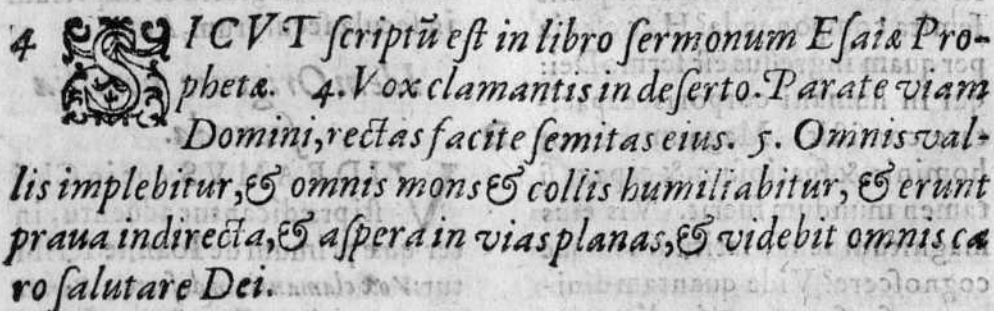 4 SICVT scriptũ est in libro sermonum Esaiæ Pro-
phetæ. 4. Vox clamantis in deserto. Parate viam
Domini, rectas facite semitas eius. 5. Omnis val-
lis implebitur, & omnis mons & collis humiliabitur, & erunt
praua indirecta, & aspera in vias planas, & videbit omnis ca
ro salutare Dei.